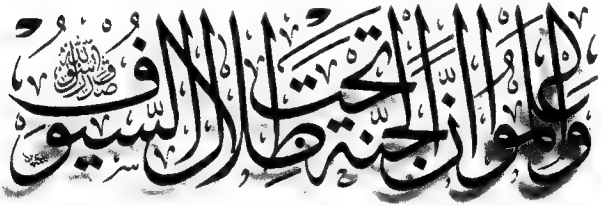 وَاعْلَمُوا أَنَّ الْجَنَّةَ تَحْتَ ظِلَالِ السُّيُوفِ
صدق رسول الله